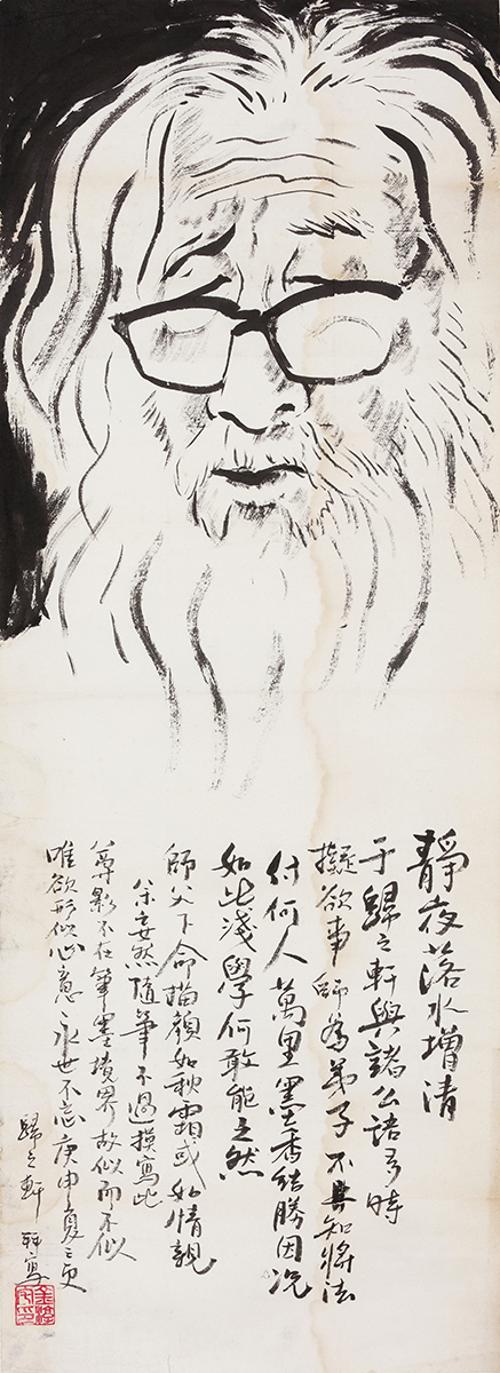 靜夜落水增清
于歸之軒與諸公語了時
擬欲事師為弟子不具知將法
付何人萬里墨香結勝因況
如此淺學何敢能之然
師父下命描顏如秋霜或如情親
余妄然隨筆不過摸寫此
尊影不在筆墨境界故似而不似
唯欲形似心意永世不忘庚申夏三更
歸之軒 軒寫